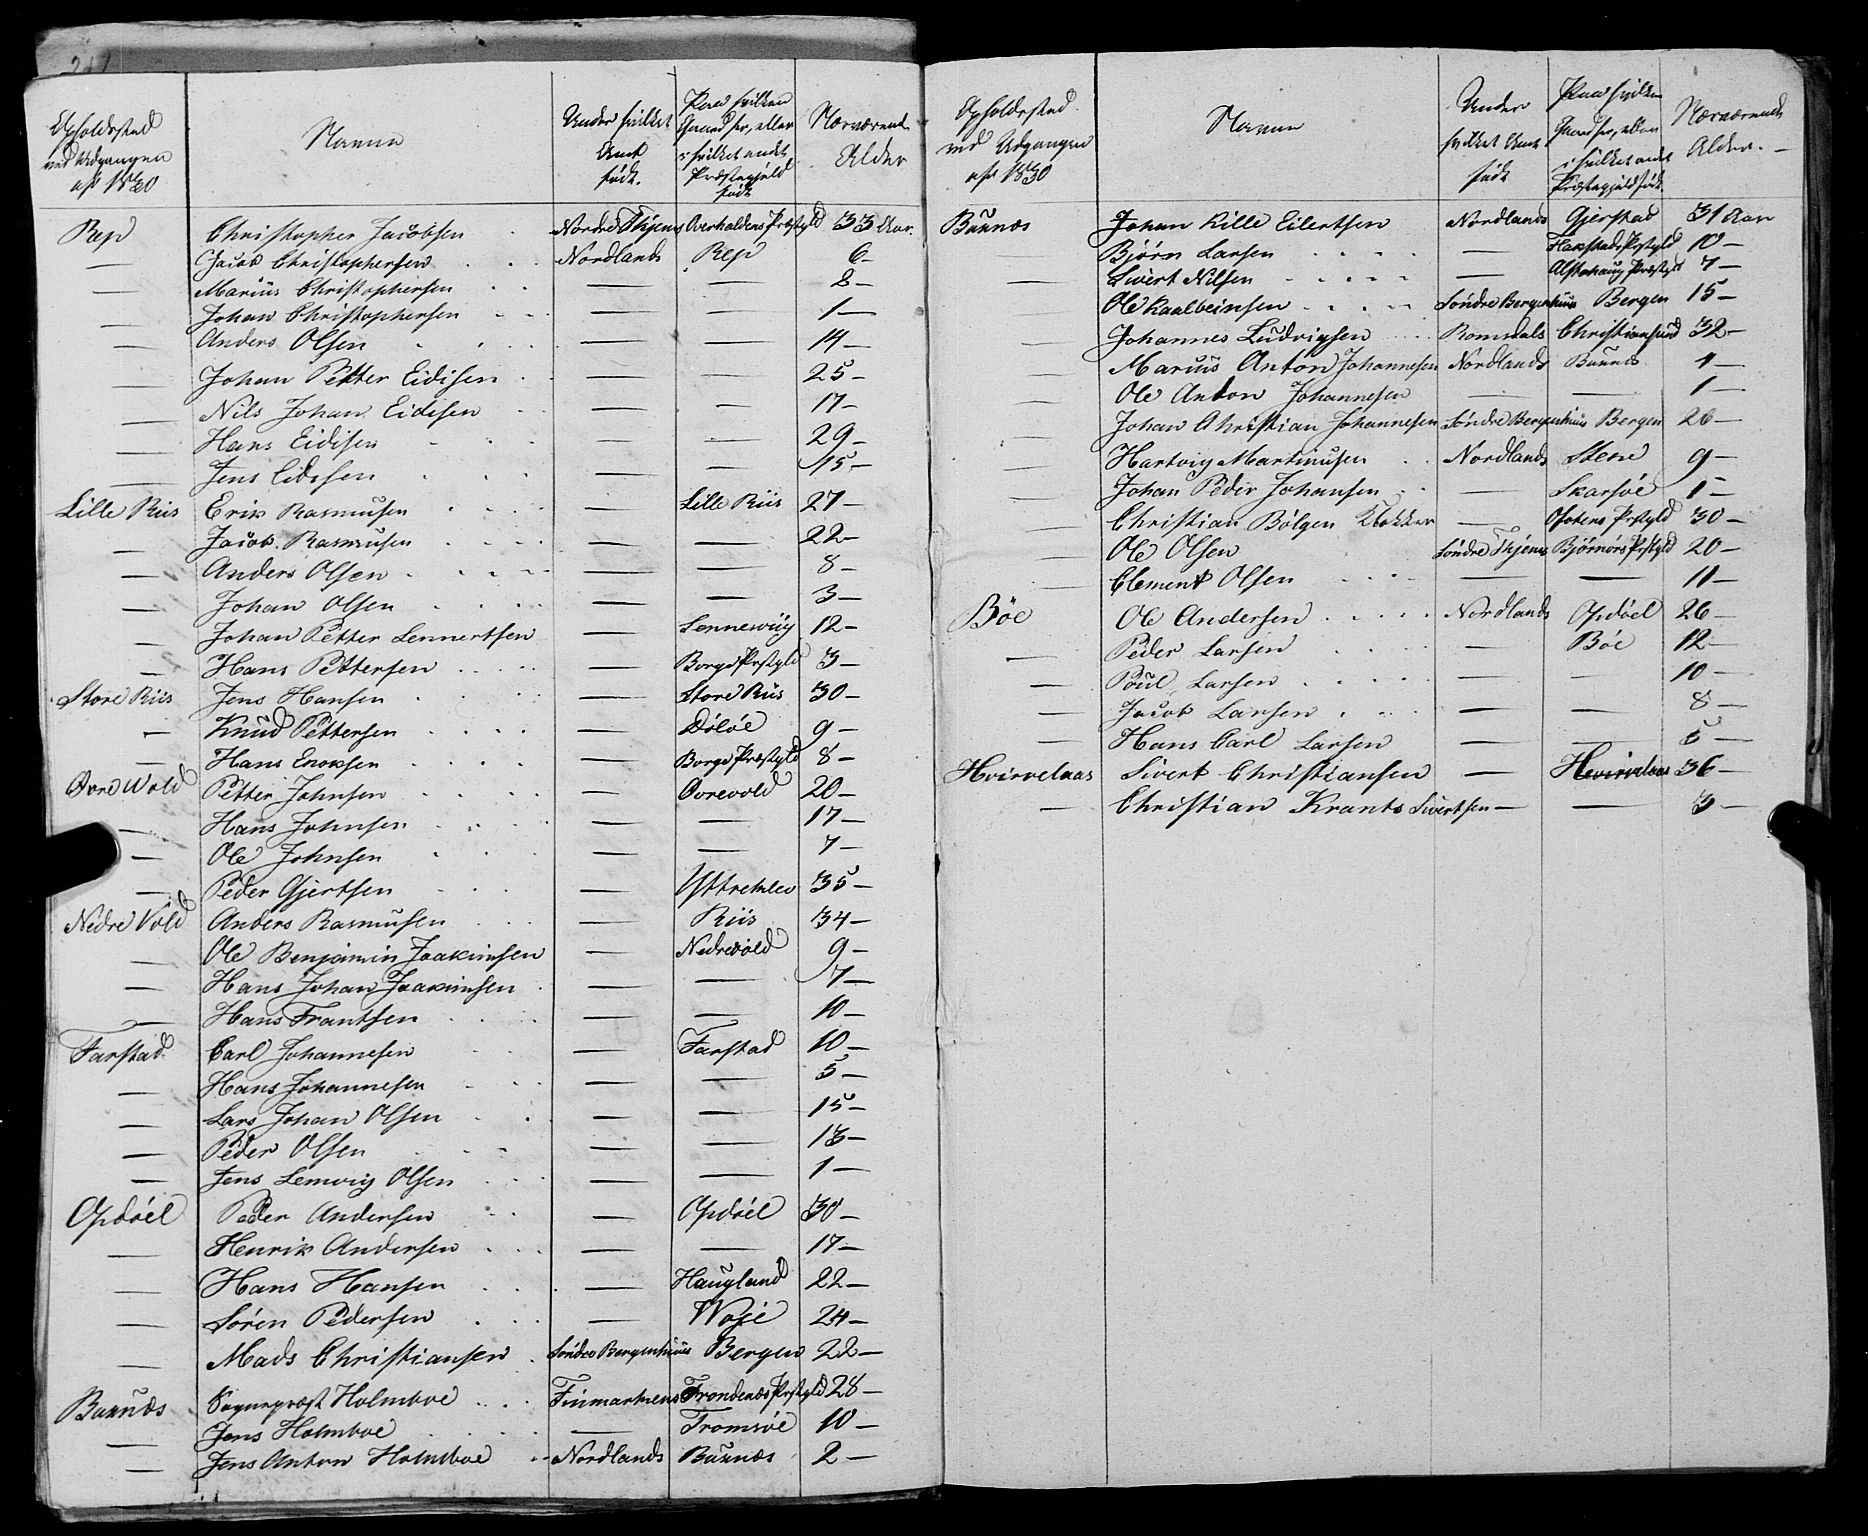 Opholdsted ved Udgangen af 1830 | Navne | Under hvilket Amt født. | Paa hvilken Gaard her, eller i hvilket andet Præstegjeld født | Nærværende Alder
Rep | Christopher Jacobsen | Nordre Thjems | Overhaldens Præstgld | 33 Aar
— | Jacob Christophersen | Nordlands | Rep | 6 —
— | Marius Christophersen | — | — | 8 —
— | Johan Christophersen | — | — | 1 —
— | Anders Olsen | — | — | 14 —
— | Johan Petter Eidisen | — | — | 25 —
— | Nils Johan Eidisen | — | — | 17 —
— | Hans Eidisen | — | — | 29 —
— | Jens Eidisen | — | — | 15 —
Lille Riis | Erik Rasmusen | — | Lille Riis | 27 —
— | Jacob Rasmusen | — | — | 22 —
— | Anders Olsen | — | — | 8 —
— | Johan Olsen | — | — | 3 —
— | Johan Petter Lennertsen | — | Sennesviig | 12 —
— | Hans Pettersen | — | Borge Prstgld | 3 —
Store Riis | Jens Hansen | — | Store Riis | 30 —
— | Knud Pettersen | — | Döløe | 9 —
— | Hans Enoksen | — | Borge Præstgld | 8 —
Øvre Wold | Petter Johnsen | — | Øvrevold | 20 —
— | Hans Johnsen | — | — | 17 —
— | Ole Johnsen | — | — | 7 —
— | Peder Gjertsen | — | Yttreklev | 35 —
Nedre Vold | Anders Rasmusen | — | Riis | 34 —
— | Ole Benjamin Joakimsen | — | Nedrevold | 9 —
— | Hans Johan Joakimsen | — | — | 7 —
— | Hans Frantsen | — | — | 10 —
Farstad | Carl Johannesen | — | Farstad | 10 —
— | Hans Johannesen | — | — | 5 —
— | Lars Johan Olsen | — | — | 15 —
— | Peder Olsen | — | — | 13 —
— | Jens Lemvig Olsen | — | — | 1 —
Opdøel | Peder Andersen | — | Opdøel | 30 —
— | Henrik Andersen | — | — | 17 —
— | Hans Hansen | — | Haugland | 22 —
— | Søren Pedersen | — | Woje | 24 —
— | Mads Christiansen | Søndre Bergenhuus | Bergen | 22 —
Buxnæs | Sogneprest Holmboe | Finmarkens | Trondenæs Prstgld | 28 —
— | Jens Holmboe | — | Tromsøe | 10 —
— | Jens Anton Holmboe | Nordlands | Buxnæs | 2 —
Opholdsted ved Udgangen af 1830 | Navne | Under hvilket Amt født | Paa hvilken Gaard her, eller i hvilket andet Præstegjeld født | Nærværende Alder. —
Buxnæs | Johan Kille Eilertsen | Nordlands | Gjerstad | 31 Aar
— | Bjørn Larsen | — | Flakstads Prstgld | 10 —
— | Sivert Nilsen | — | Alstahaug Præstgld | 7 —
— | Ole Kaalbeinsen | Søndre Bergenhuus | Bergen | 15 —
— | Johannes Ludvigsen | Romsdals | Christiansund | 32 —
— | Marius Anton Johannesen | Nordlands | Buxnæs | 4 —
— | Ole Anton Johannesen | — | — | 1 —
— | Johan Christian Johannesen | Søndre Bergenhuus | Bergen | 26 —
— | Hartvig Martinusen | Nordlands | Stene | 9 —
— | Johan Peder Johansen | — | Skarsøe | 1 —
— | Christian Bölgen Klokker | — | Ofotens Prstgld | 30 —
— | Ole Olsen | Søndre Thjems | Bjørnørs Prstgld | 20 —
— | Clement Olsen | — | — | 11 —
Bøe | Ole Andersen | Nordlands | Opdøel | 26 —
— | Peder Larsen | — | Bøe | 12 —
— | Poul Larsen | — | — | 10 —
— | Jacob Larsen | — | — | 8 —
— | Hans Carl Larsen | — | — | 5 —
Hvirvelaas | Sivert Christiansen | — | Hvirvelaas | 36 —
— | Christian Krants Sivertsen | — | — | 3 —